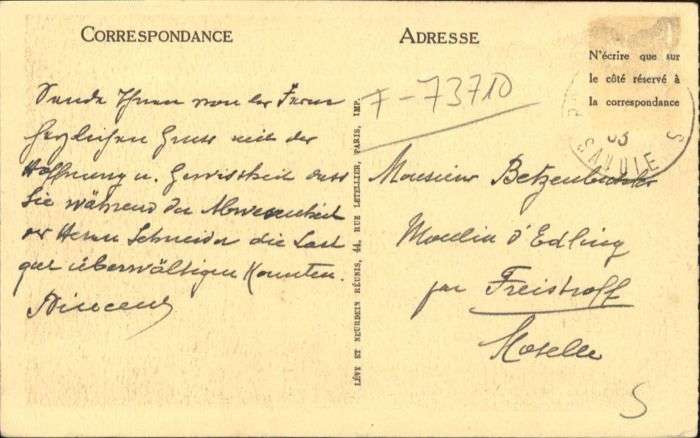 CORRESPONDANCE
ADRESSE
N'écrire que sur
le côté réservé à
la correspondance
SAVOIE
F-73710
Sende Ihnen von der Ferne
herzlichen Gruss mit der
Hoffnung u. Gewissheit dass
Sie während der Abwesenheit
des Herrn Schneider die Last
gut überwältigen konnten.
Vincent
LÉVY ET NEURDEIN RÉUNIS, 44, RUE LETELLIER, PARIS, IMP.
Monsieur
Moulin d'Edling
par Freistroff
Moselle
S